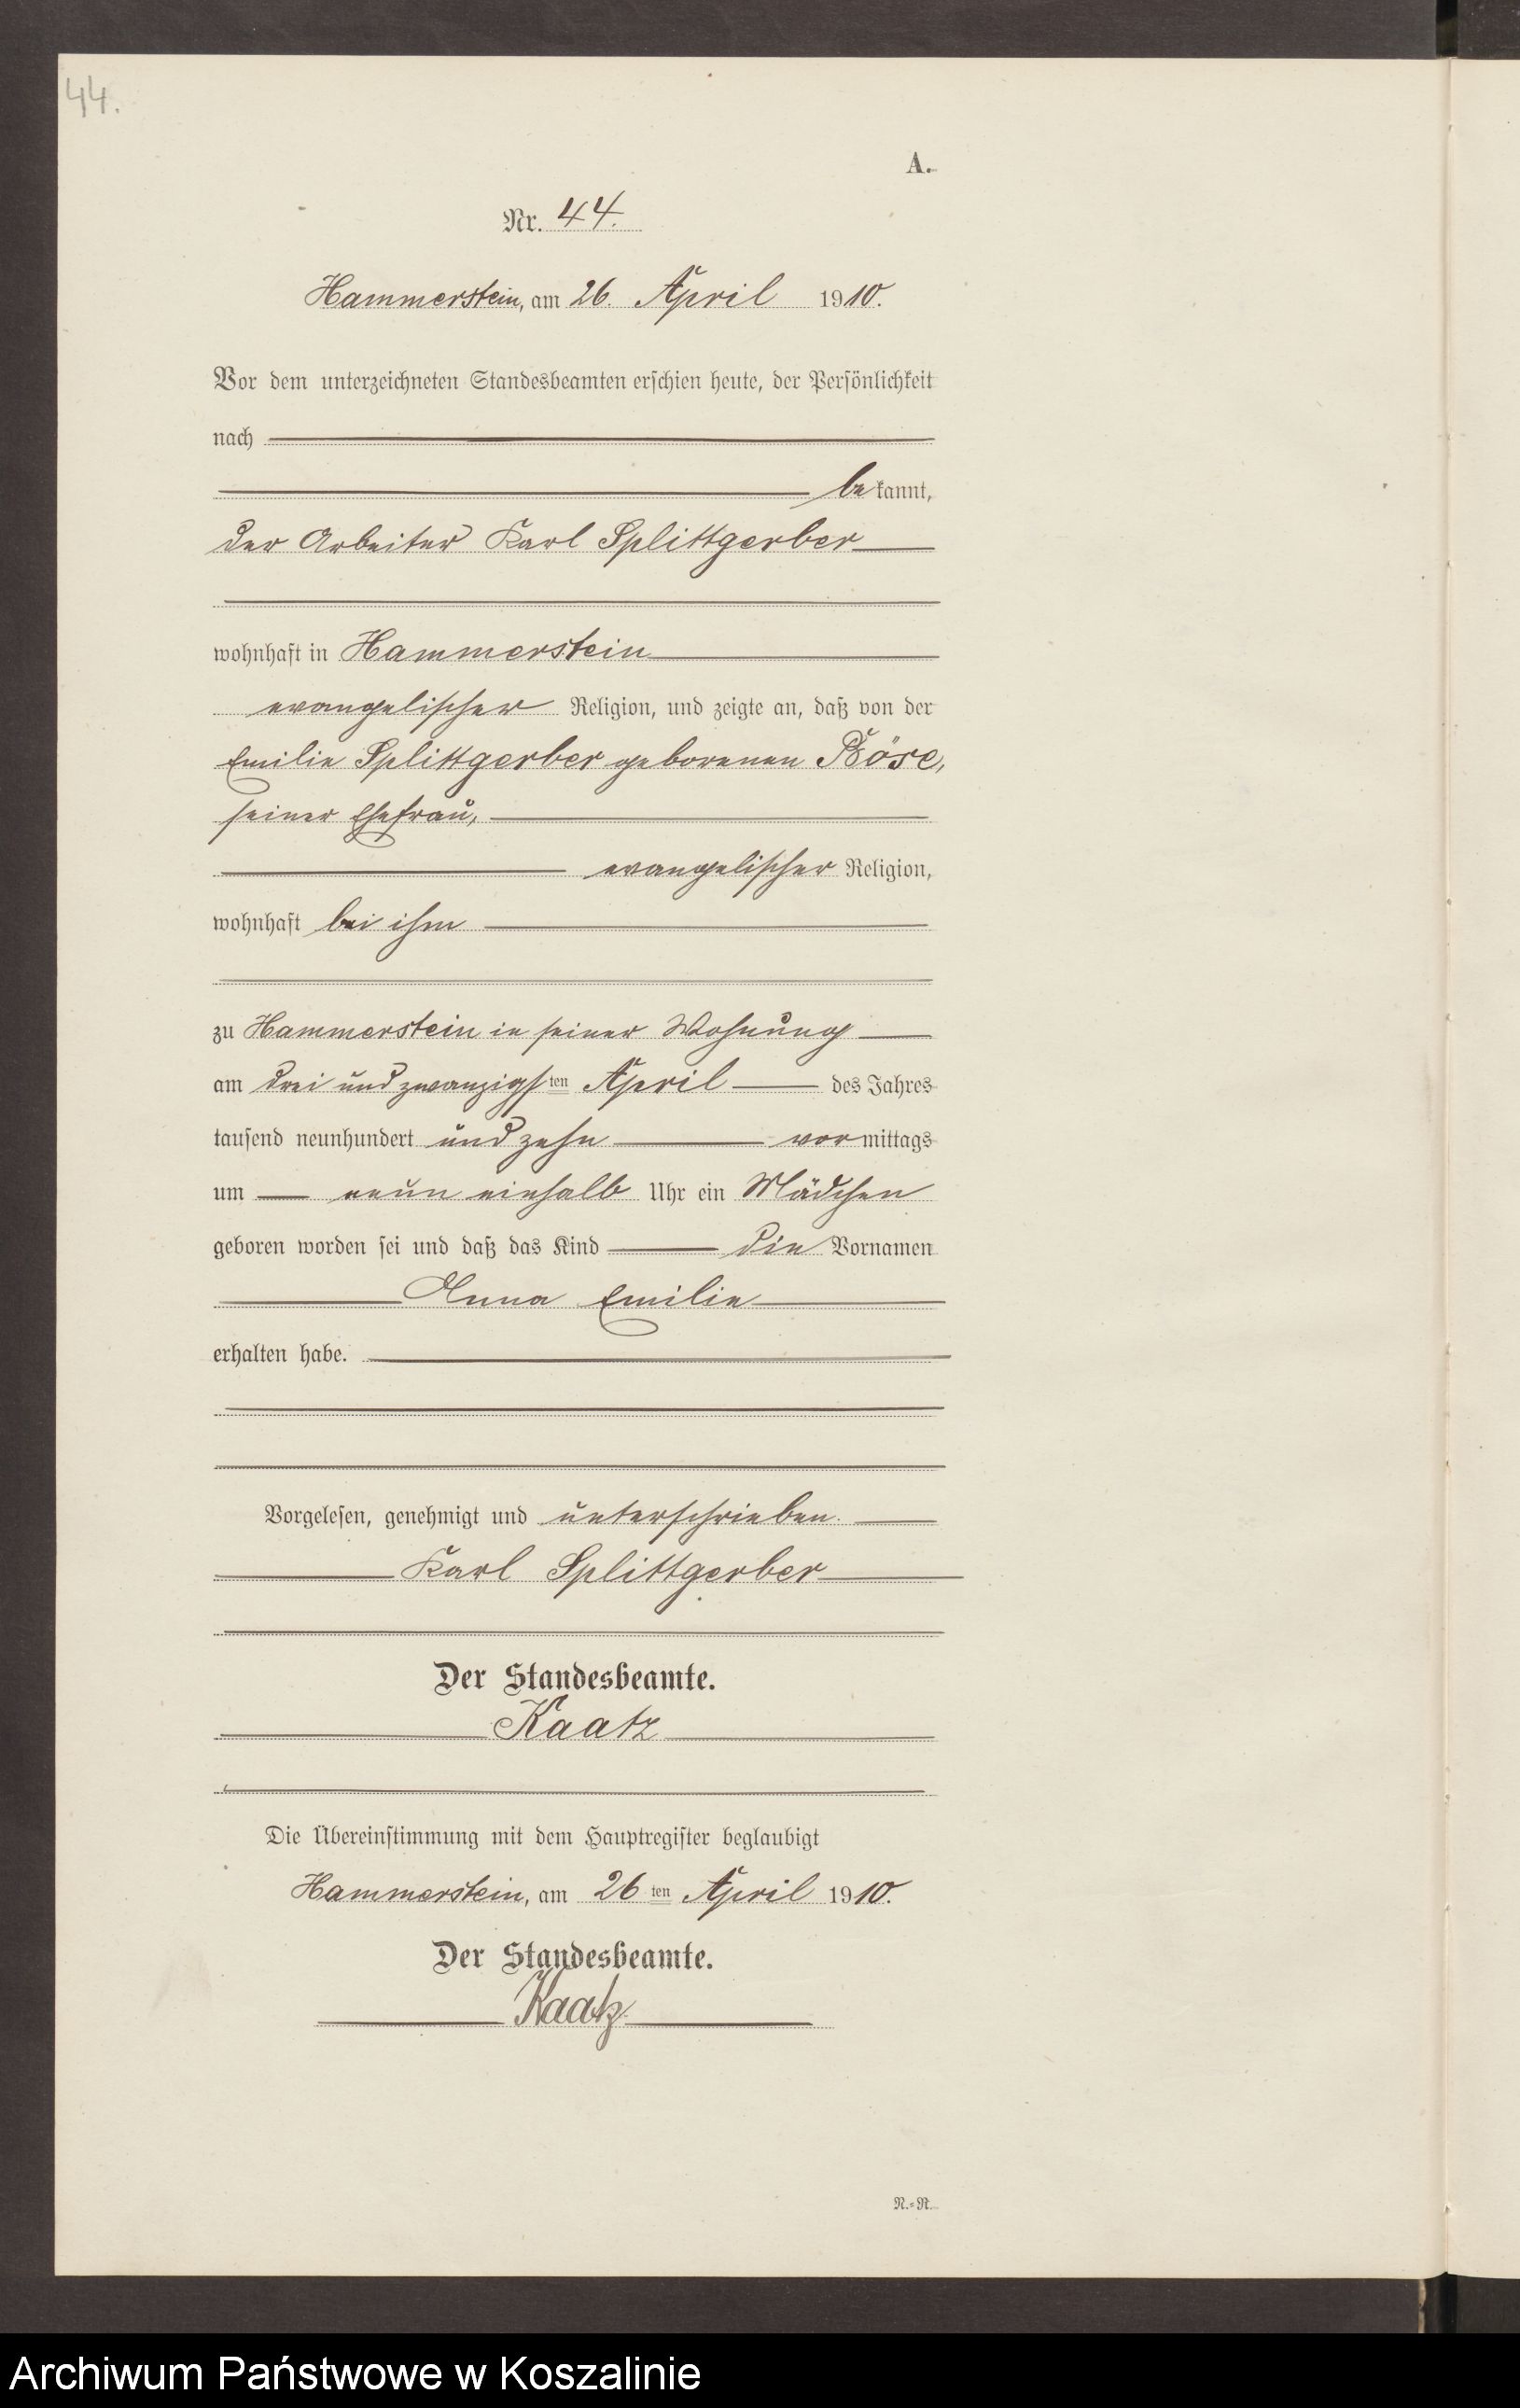 44.
A.
Nr. 44.
Hammerstein, am 26. April 1910.
Vor dem unterzeichneten Standesbeamten erschien heute, der Persönlichkeit
nach
bekannt,
der Arbeiter Karl Splittgerber
wohnhaft in Hammerstein
evangelischer Religion, und zeigte an, daß von der
Emilie Splittgerber geborenen Böse,
seiner Ehefrau,
evangelischer Religion,
wohnhaft bei ihm
zu Hammerstein in seiner Wohnung
am drei und zwanzigsten April des Jahres
tausend neunhundert und zehn vormittags
um neun einhalb Uhr ein Mädchen
geboren worden sei und daß das Kind die Vornamen
Anna Emilie
erhalten habe.
Vorgelesen, genehmigt und unterschrieben.
Karl Splittgerber
Der Standesbeamte.
Kaatz
Die Übereinstimmung mit dem Hauptregister beglaubigt
Hammerstein, am 26ten April 1910.
Der Standesbeamte.
Kaatz.
N.=R.
Archiwum Państwowe w Koszalinie